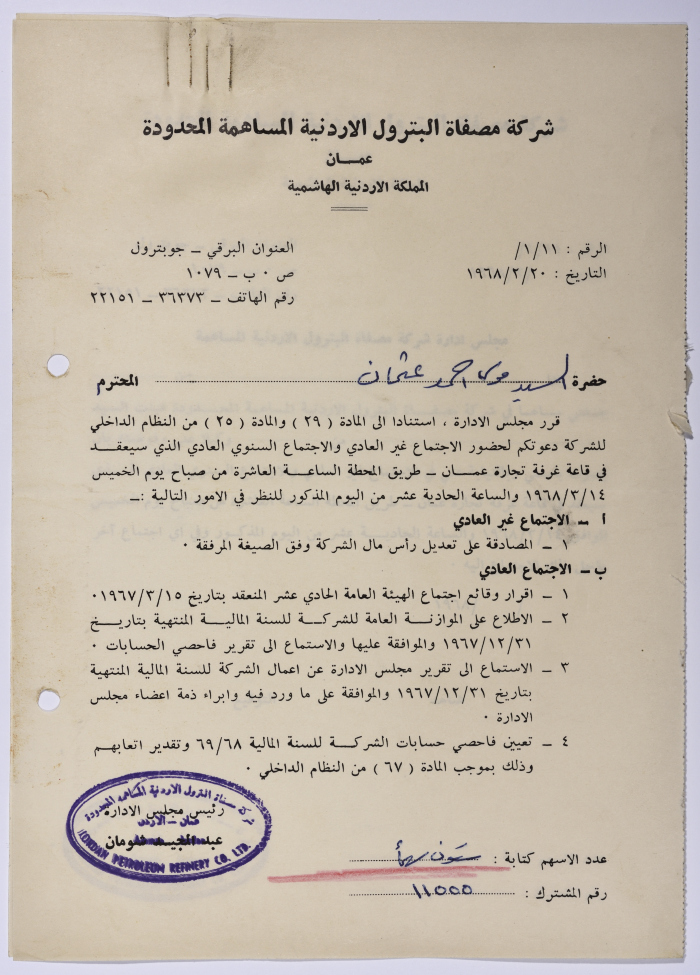 شركة مصفاة البترول الاردنية المساهمة المحدودة
عمــان
المملكة الاردنية الهاشمية
الرقم : ١/١١/
العنوان البرقي ــ جوبترول
التاريخ : ١٩٦٨/٢/٢٠
ص ٠ ب ــ ١٠٧٩
رقم الهاتف ــ ٣٦٣٧٣ ــ ٢٢١٥١
حضرة السيد موسى احمد عثمان المحترم
قرر مجلس الادارة ، استنادا الى المادة ( ٢٩ ) والمادة ( ٢٥ ) من النظام الداخلي
للشركة دعوتكم لحضور الاجتماع غير العادي والاجتماع السنوي العادي الذي سيعقــد
في قاعة غرفة تجارة عمــان ــ طريق المحطة الساعــة العاشرة من صباح يوم الخميس
١٩٦٨/٣/١٤ والساعة الحادية عشر من اليوم المذكور للنظر في الامور التالية :ــ
أ ــ الاجتماع غير العادي
١ ــ المصادقة على تعديل رأس مال الشركة وفق الصيغة المرفقة ٠
ب ــ الاجتماع العادي
١ ــ اقرار وقائع اجتماع الهيئة العامة الحادي عشر المنعقد بتاريخ ١٩٦٧/٣/١٥٠
٢ ــ الاطلاع على الموازنــة العامة للشركــة للسنة الماليــة المنتهية بتاريــخ
١٩٦٧/١٢/٣١ والموافقة عليها والاستماع الى تقرير فاحصي الحسابات ٠
٣ ــ الاستماع الى تقرير مجلس الادارة عن اعمال الشركة للسنة المالية المنتهية
بتاريخ ١٩٦٧/١٢/٣١ والموافقة على ما ورد فيه وابراء ذمة اعضاء مجلس
الادارة ٠
٤ ــ تعيين فاحصي حسابات الشركــة للسنة المالية ٦٩/٦٨ وتقدير اتعابهــم
وذلك بموجب المادة ( ٦٧ ) من النظام الداخلي ٠
رئيس مجلس الادارة
عبد المجيــد شومان
شركة مصفاة البترول الاردنية المساهمة المحدودة
عمان ــ الاردن
JORDAN PETROLEUM REFINERY CO. LTD.
عدد الاسهم كتابة : ستون سهماً
رقم المشترك : ١١٥٥٥